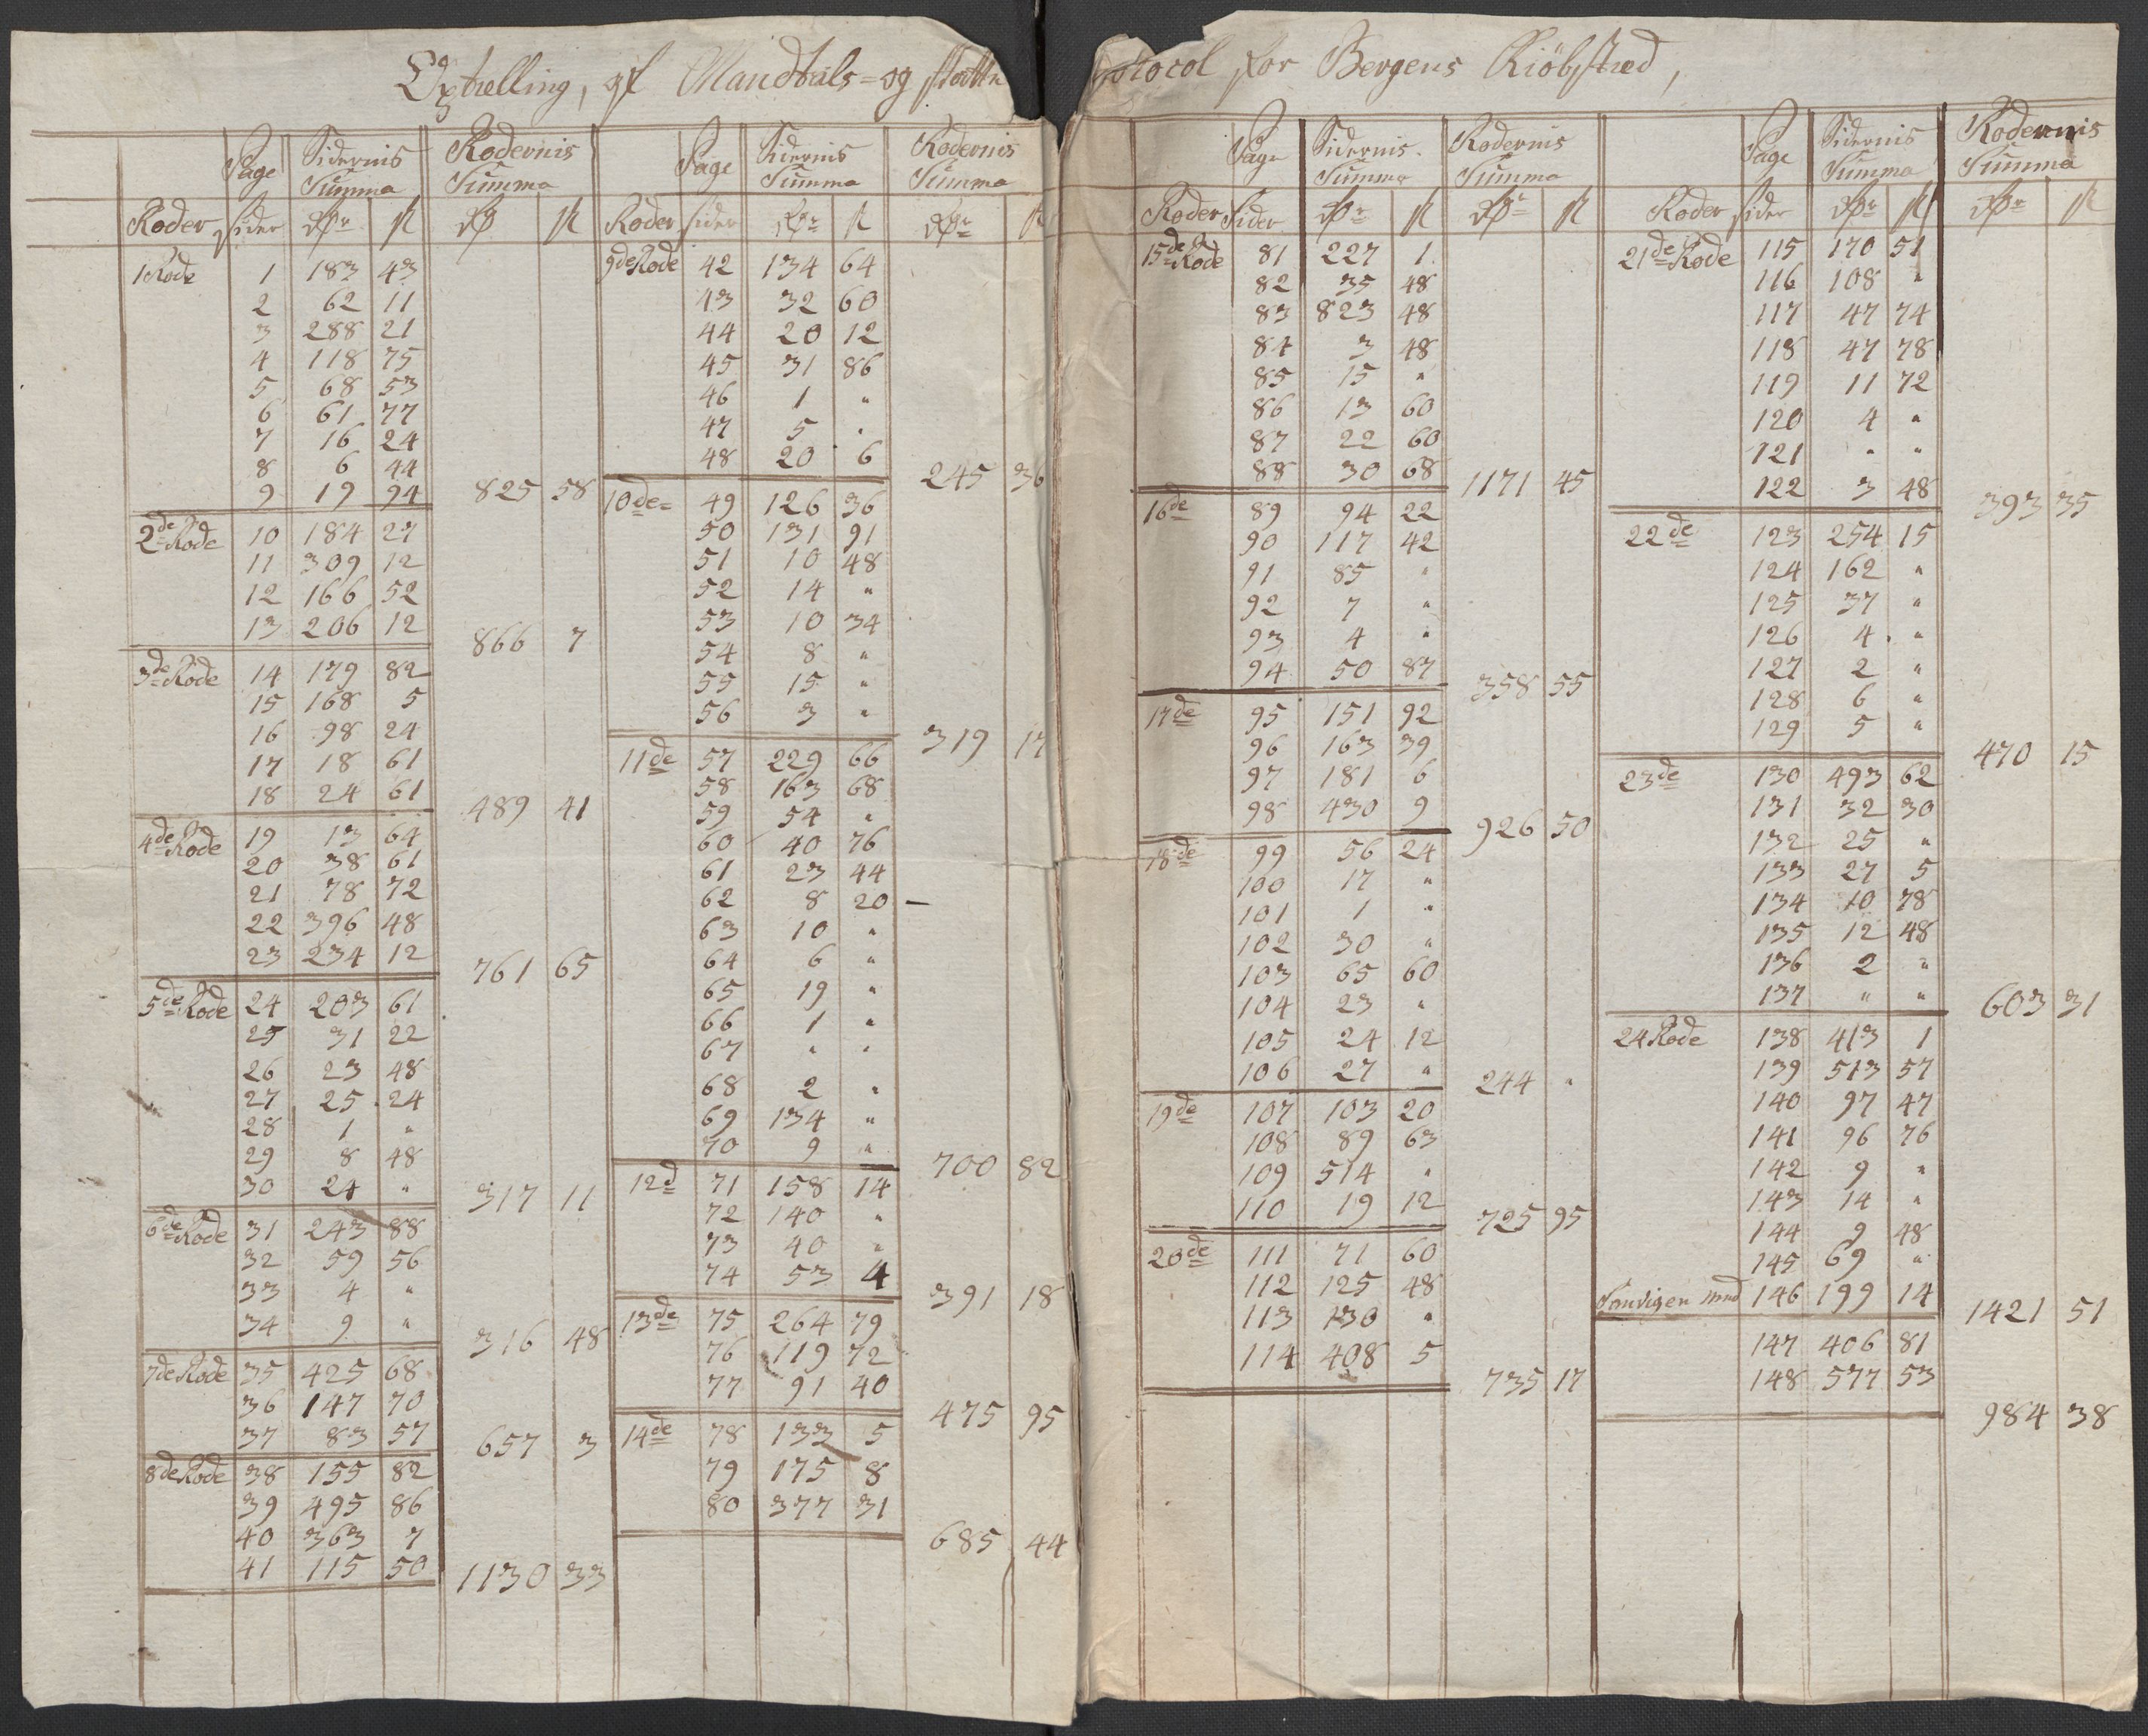 Optælling, af Mandtals= og skatte
Page Sidernis Summa Rodernis Summa
Roder sider rdr ß rd ß
1 Rode 1 183 43
2 62 11
3 288 21
4 118 75
5 68 53
6 61 77
7 16 24
8 6 44
9 19 94
825 58
2de Rode 10 184 27
11 309 12
12 166 52
13 206 12
866 7
3de Rode 14 179 82
15 168 5
16 98 24
17 18 61
18 24 61
489 41
4de Rode 19 13 64
20 38 61
21 78 72
22 396 48
23 234 12
761 65
5de Rode 24 203 61
25 31 22
26 23 48
27 25 24
28 1 "
29 8 48
30 24 "
317 11
6de Rode 31 243 88
32 59 56
33 4 "
34 9 "
316 48
7de Rode 35 425 68
36 147 70
37 83 57
657 3
8de Rode 38 155 82
39 495 86
40 363 7
41 115 50
1130 33
Page Sidernis Summa Rodernis Summa
Roder sider rdr ß rdr ß
9de Rode 42 134 64
43 32 60
44 20 12
45 31 86
46 1 "
47 5 "
48 20 6
245 36
10de 49 126 36
50 131 91
51 10 48
52 14 "
53 10 34
54 8 "
55 15 "
56 3 "
319 17
11de 57 229 66
58 163 68
59 54 "
60 40 76
61 23 44
62 8 20 –
63 10 "
64 6 "
65 19 "
66 1 "
67 " "
68 2 "
69 134 "
70 9 "
700 82
12d 71 158 14
72 140 "
73 40 "
74 53 4
391 18
13de 75 264 79
76 119 72
77 91 40
475 95
14de 78 133 5
79 175 8
80 377 31
685 44
otocol for Bergens Kiöbstæd,
Page Sidernis Summa Rodernis Summa
Roder Sider rdr ß rdr ß
15de Rode 81 227 1
82 35 48
83 823 48
84 3 48
85 15 "
86 13 60
87 22 60
88 30 68
1171 45
16de 89 94 22
90 117 42
91 85 "
92 7 "
93 4 "
94 50 87
358 55
17de 95 151 92
96 163 39
97 181 6
98 430 9
926 50
18de 99 56 24
100 17 "
101 1 "
102 30 "
103 65 60
104 23 "
105 24 12
106 27 "
244 "
19de 107 103 20
108 89 63
109 514 "
110 19 12
725 95
20de 111 71 60
112 125 48
113 130 "
114 408 5
735 17
Page Sidernis Summa Rodernis Summa
Roder sider rdr ß rdr ß
21de Rode 115 170 51
116 108 "
117 47 74
118 47 78
119 11 72
120 4 "
121 " "
122 3 48
393 35
22de 123 254 15
124 162 "
125 37 "
126 4 "
127 2 "
128 6 "
129 5 "
470 15
23de 130 493 62
131 32 30
132 25 "
133 27 5
134 10 78
135 12 48
136 2 "
137 " "
603 31
24 Rode 138 413 1
139 513 57
140 97 47
141 96 76
142 9 "
143 14 "
144 9 48
145 69 "
Sandvigen 146 199 14
1421 51
147 406 81
148 577 53
984 38